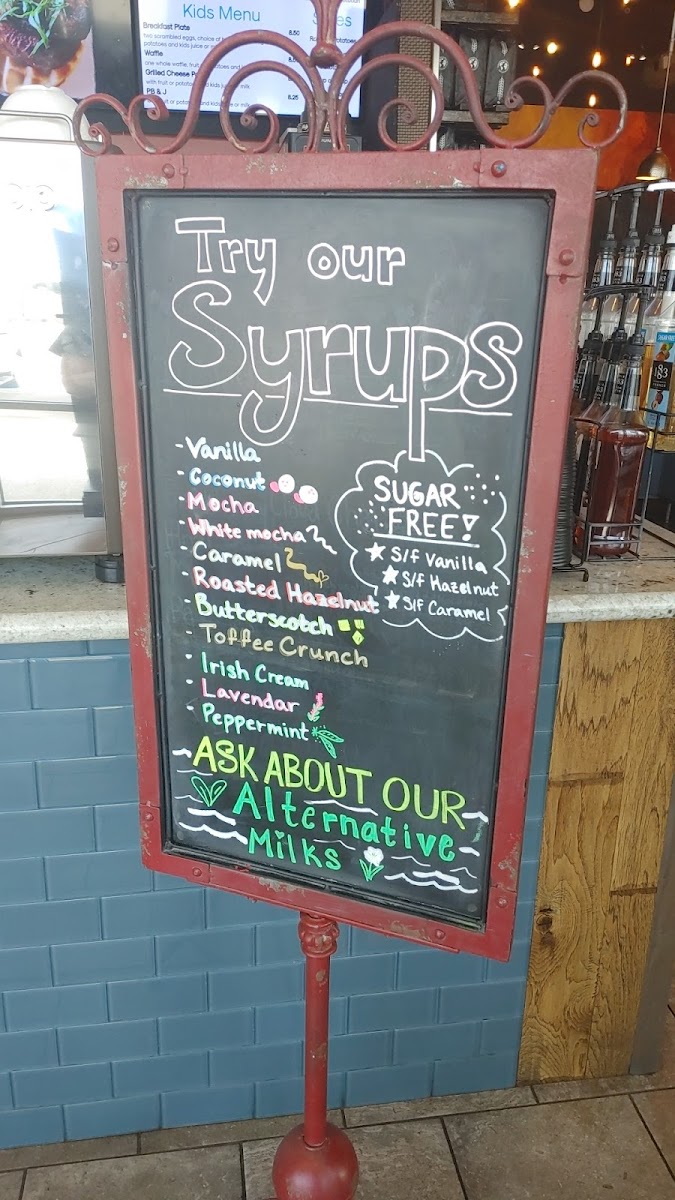 Kids Menu
Breakfast Plate
8.50
two scrambled eggs, choice of
potatoes and kids juice or
Waffle
one whole waffle, fruit
Grilled Cheese
with fruit or potatoes
PB & J
8.25
fruit or potatoes and kids juice or milk
Try our
Syrups
- Vanilla
- Coconut
- Mocha
- White mocha
- Caramel
- Roasted Hazelnut
- Butterscotch
- Toffee Crunch
- Irish Cream
- Lavendar
- Peppermint
SUGAR
FREE!
S/f Vanilla
S/f Hazelnut
S/f Caramel
ASK ABOUT OUR
Alternative
Milks
1883